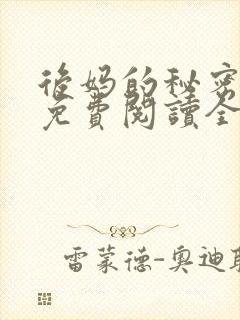 後妈的秘密
免費閱讀全
雷蒙德-奥迪耶